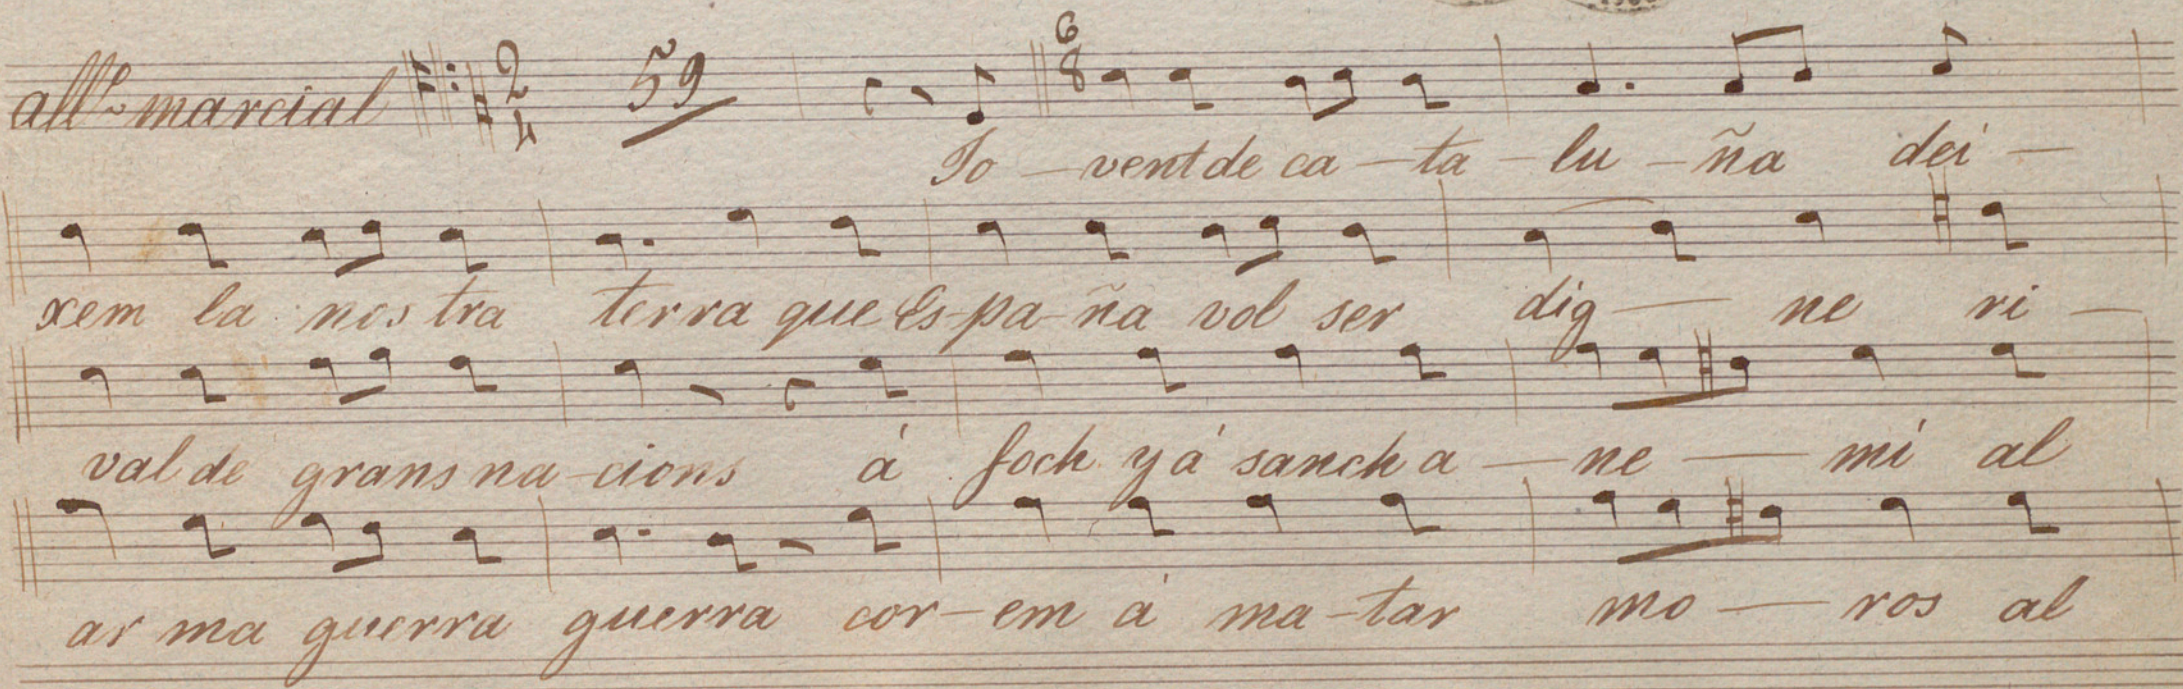 all.º marcial 2 4 59 6 8
Jo — vent de ca — ta — lu — ña dei —
xem la nos tra terra que Es-pa-ña vol ser dig — ne ri —
val de grans na-cions á foch y á sanch a — ne — mi al
ar ma guerra guerra cor-em á ma-tar mo — ros al